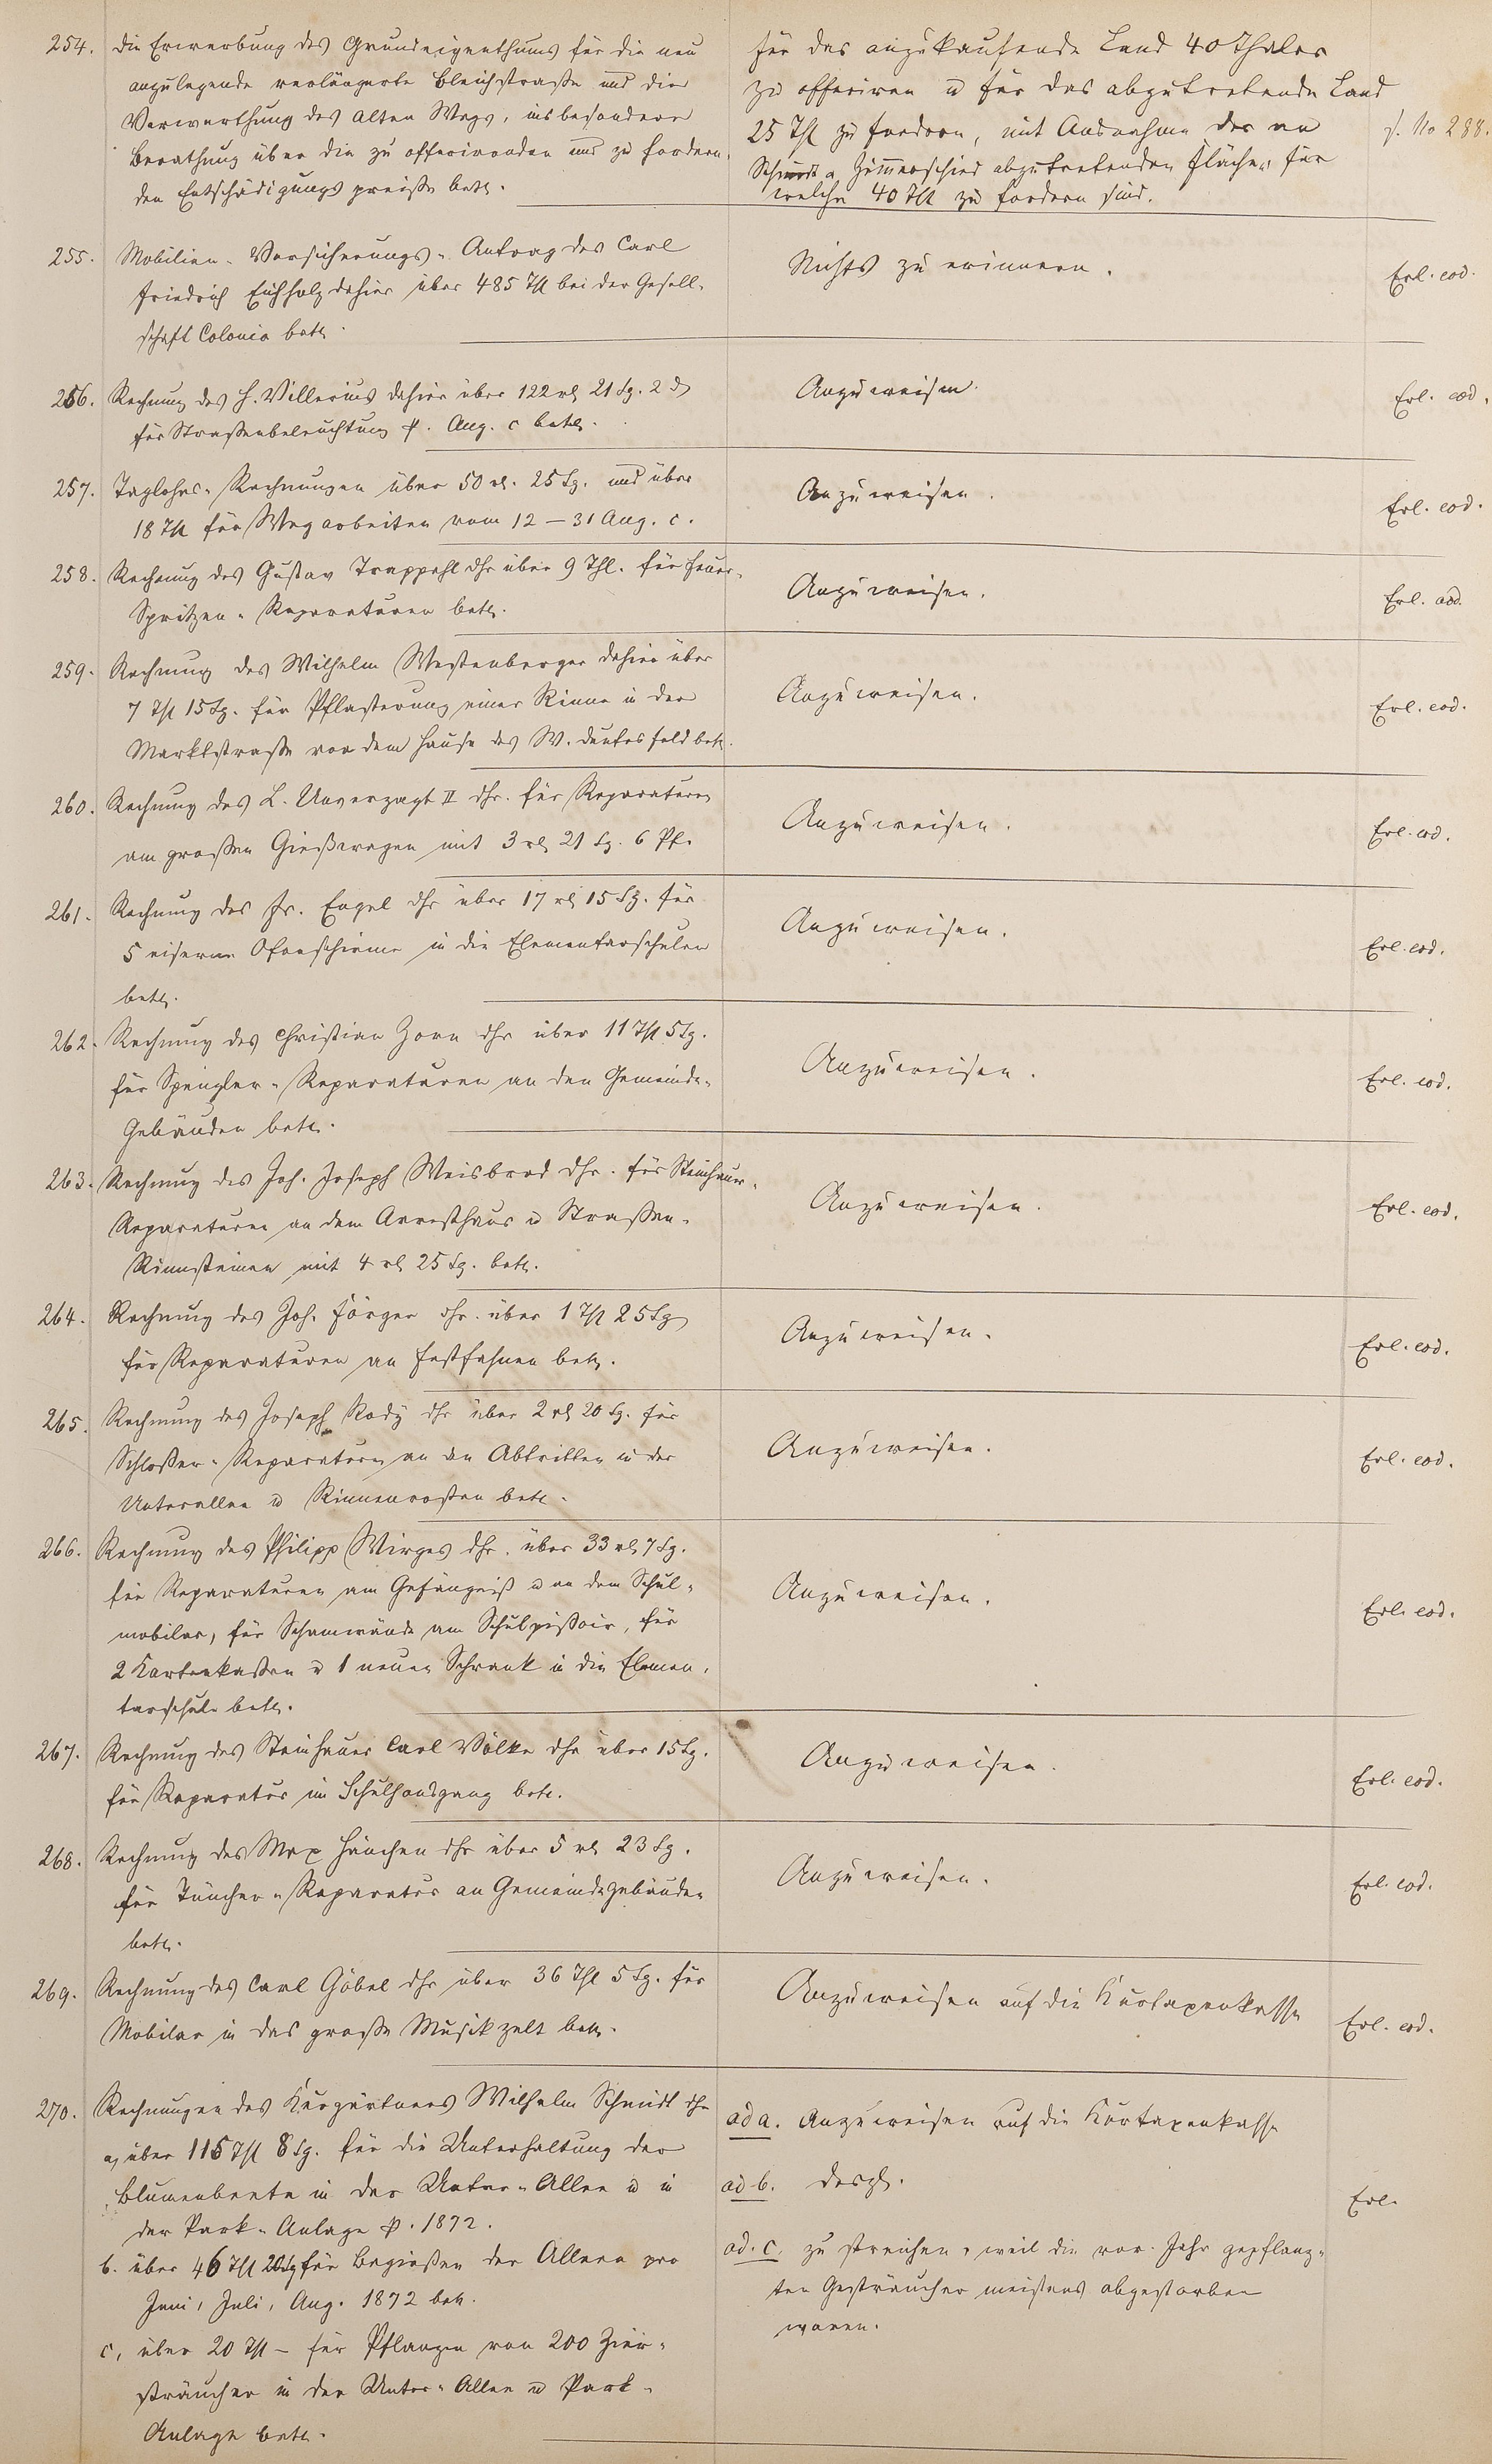 254. die Erwerbung des Grundeigenthums für die neu
anzulegende verlängerte Bleichstraße und die
Verwerthung des alten Wegs, insbesondere
Berathung über die zu offerirenden und zu fordern-
den Entschädigungspreiße betr.
für das anzukaufende Land 40 Thaler
zu offeriren u für das abzutretende Land
25 Thl zu fordern, mit Ausnahme der an
Schmidt a Zimmerschied abzutretenden Fläche, für
welche 40 Thl zu fordern sind.
s. No 288.
255. Mobilien-Versicherungs-Antrag des Carl
Friedrich Eichholz dahier über 485 Thl bei der Gesell-
schaft Colonia betr.
Nichts zu erinnern.
Erl. eod.
256. Rechnung des H. Villerius dahier über 122 rl 21 Sg. 2 d
für Straßenbeleuchtung p. Aug. c betr.
Anzuweisen.
Erl. eod.
257. Taglohns-Rechnungen über 50 rl. 25 Sg. und über
18 Thl für Wegarbeiten vom 12 – 31 Aug. c.
Anzuweisen.
Erl. eod.
258. Rechnung des Gustav Trappehl dhr über 9 Thl. für Feuer-
Spritzen-Reparaturen betr.
Anzuweisen.
Erl. eod.
259. Rechnung des Wilhelm Westenberger dahier über
7 Thl 15 Sg. für Pflasterung einer Rinne in der
Marktstraße vor dem Hause des W. Deutesfeld betr.
Anzuweisen.
Erl. eod.
260. Rechnung des L. Unverzagt II dhr. für Reparaturen
am großen Gießwagen mit 3 rl 21 Sg. 6 Pf.
Anzuweisen.
Erl. eod.
261. Rechnung des Fr. Engel dhr über 17 rl 15 Sg. für
5 eiserne Ofenschirme in die Elementarschulen
betr.
Anzuweisen.
Erl. eod.
262. Rechnung des Christian Zorn dhr über 11 Thl 5 Sg.
für Spengler-Reparaturen an den Gemeinde-
Gebäuden betr.
Anzuweisen.
Erl. eod.
263. Rechnung des Joh. Joseph Weisbrod dhr. für Steinhauer-
Reparaturen an dem Arresthaus u Straßen-
Rinnsteinen mit 4 rl 25 Sg. betr.
Anzuweisen.
Erl. eod.
264. Rechnung des Joh. Jörger dhr. über 1 Thl 25 Sg
für Reparaturen an Festfahnen betr.
Anzuweisen.
Erl. eod.
265. Rechnung des Joseph Rody dhr über 2 rl 20 Sg. für
Schlosser-Reparaturen an den Abtritten in der
Unterallee u Rinnenrosten betr.
Anzuweisen.
Erl. eod.
266. Rechnung des Philipp Wirges dhr. über 33 rl 7 Sg.
für Reparaturen am Gefängniß u an dem Schul-
mobilar, für Schamwände am Schulpissoir, für
2 Kartenkasten u 1 neuen Schrank in die Elemen-
tarschule betr.
Anzuweisen.
Erl. eod.
267. Rechnung des Steinhauer Carl Völke dhr über 15 Sg.
für Reparatur im Schulhausgang betr.
Anzuweisen.
Erl. eod.
268. Rechnung des Max Hänchen dhr über 5 rl 23 Sg.
für Tüncher-Reparatur an Gemeindegebäuden
betr.
Anzuweisen.
Erl. eod.
269. Rechnung des Carl Göbel dhr über 36 Thl 5 Sg. für
Mobilar in das große Musikzelt betr.
Anzuweisen auf die Kurtaxenkasse
Erl. eod.
270. Rechnungen des Kurgärtners Wilhelm Schmidt dhr
a, über 115 Thl 8 Sg. für die Unterhaltung der
Blumenbeete in der Unter-Allee u in
der Park-Anlage p. 1872.
b. über 46 Thl 20 Sg für Begießen der Alleen pro
Juni, Juli, Aug. 1872 betr.
c, über 20 Thl – für Pflanzen von 200 Zier-
sträucher in der Unter-Allee u Park-
Anlage betr.
ad a. Anzuweisen auf die Kurtaxenkasse
ad b. desgl.
ad. c. zu streichen, weil die vor. Jahr gepflanz-
ten Gesträucher meistens abgestorben
waren.
Erl.